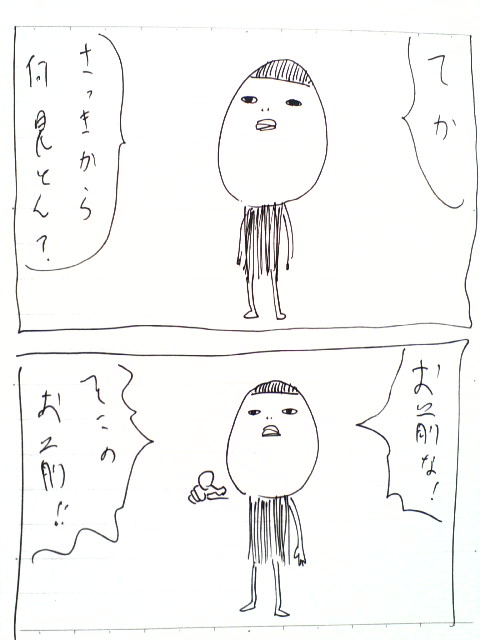 てか
さっきから
何見とん?
お前な!
そこの
お前!!